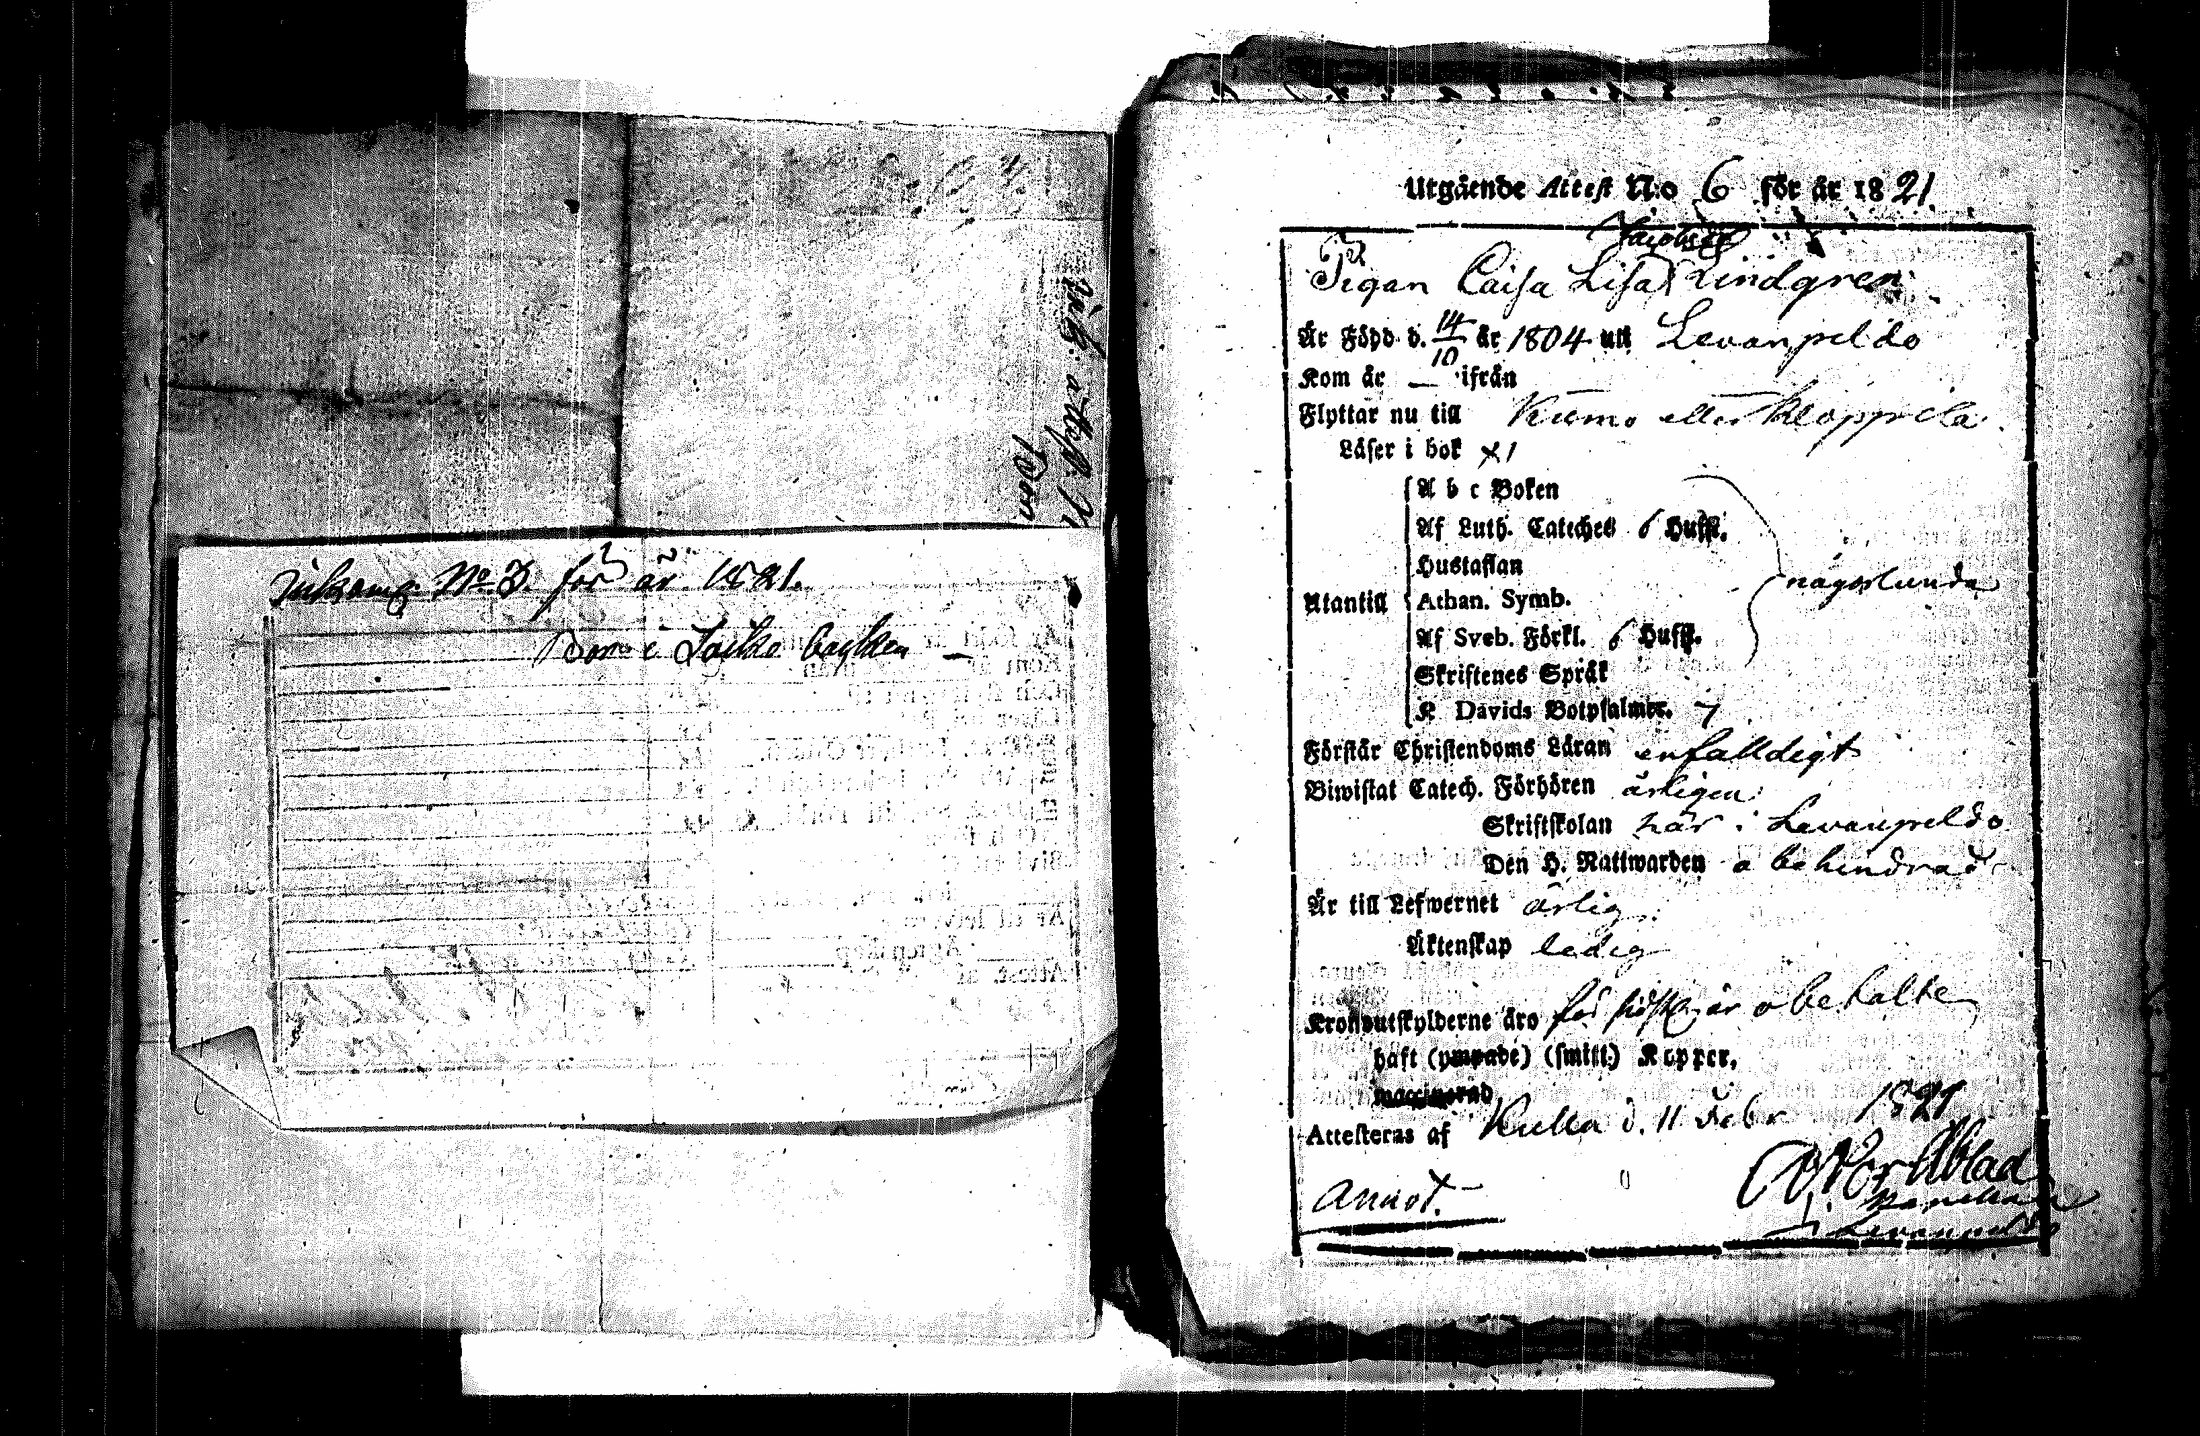 Inkomg. No 3. för år 1821.
Bor i Loikko backen —
Utgående Attest N:o 6 för år 1821.
Pigan Caisa Lisa Lindgren
Är Född d. 14/10 år 1804 uti Levanpeldo
Kom år — ifrån
Flyttar nu till Kumo eller Kloppila
Läser i bok x1
A b c Boken
Af Luth. Cateches 6 Hufst.
Hustaflan
någorlunda
Utantill Athan. Symb.
Af Sveb. Förkl. 6 Hufst.
Skriftenes Språk
K Davids Botpsalmer. 7
Förstår Christendoms Läran enfalldigt
Biwistat Catech. Förhören årligen
Skriftskolan här i Levanpeldo
Den H. Nattwarden obehindrad
Är till Lefwernet ärlig
Äktenskap ledig
Kronoutskylderne äro för sidst. år obetalte
haft (ympade) (smitt.) Koppor.
waccinerad
Attesteras af Kulla d. 11 Febr 1821
Annot.